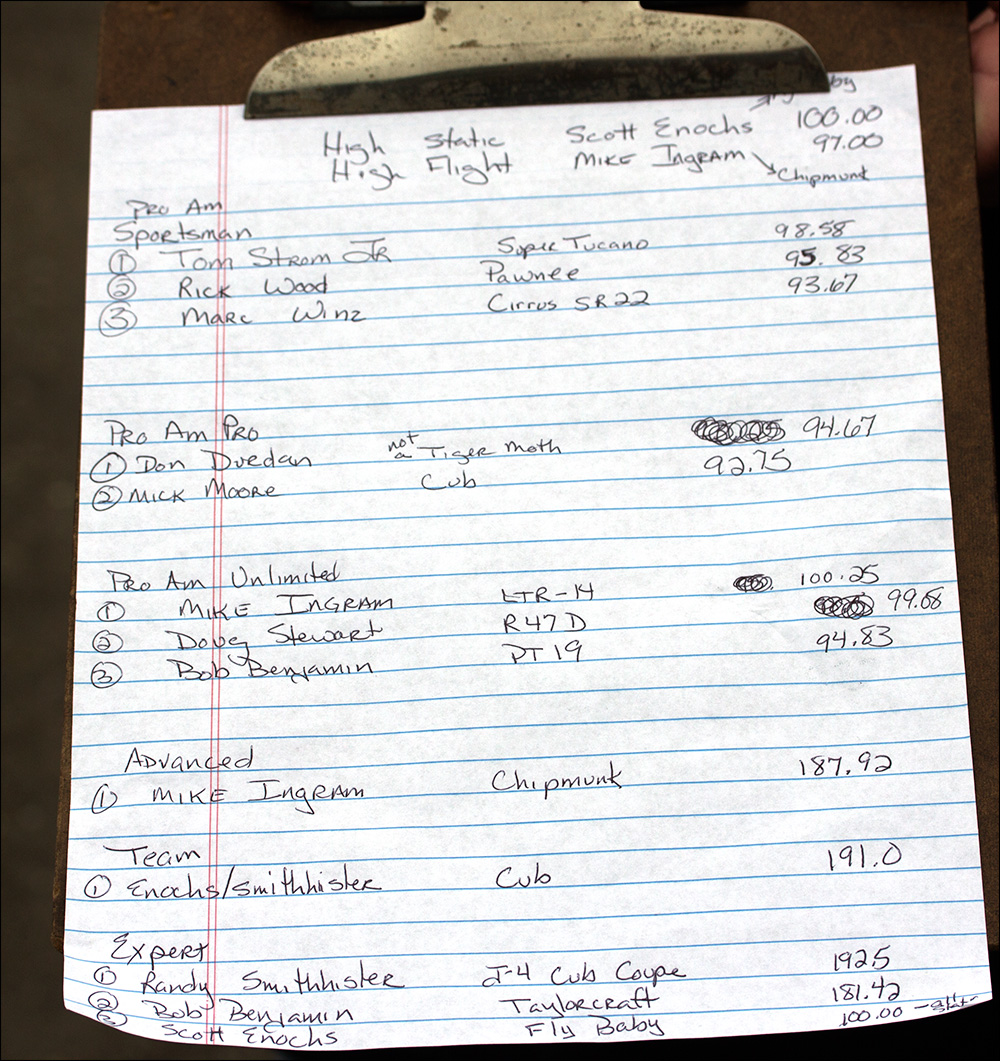 by
High Static Scott Enochs 100.00
High Flight MIKE INGRAM 97.00
Chipmunk
PRO AM
Sportsman
① Tom Strom JR Super Tucano 98.58
② RICK Wood Pawnee 95.83
③ MARC WINZ Cirrus SR22 93.67
PRO Am PRO
① Don Dvedan not a TIGER Moth 94.67
② MICK MOORE Cub 92.75
PRO Am Unlimited
① MIKE INGRAM LTR-14 100.25
② Doug Stewart R47D 99.08
③ Bob Benjamin PT 19 94.83
ADVANCED
① MIKE INGRAM Chipmunk 187.92
Team
① Enochs/Smithhister Cub 191.0
Expert
① RANDY Smithhister J-4 Cub Coupe 192.5
② Bob Benjamin Taylorcraft 181.42
③ Scott Enochs Fly Baby 100.00